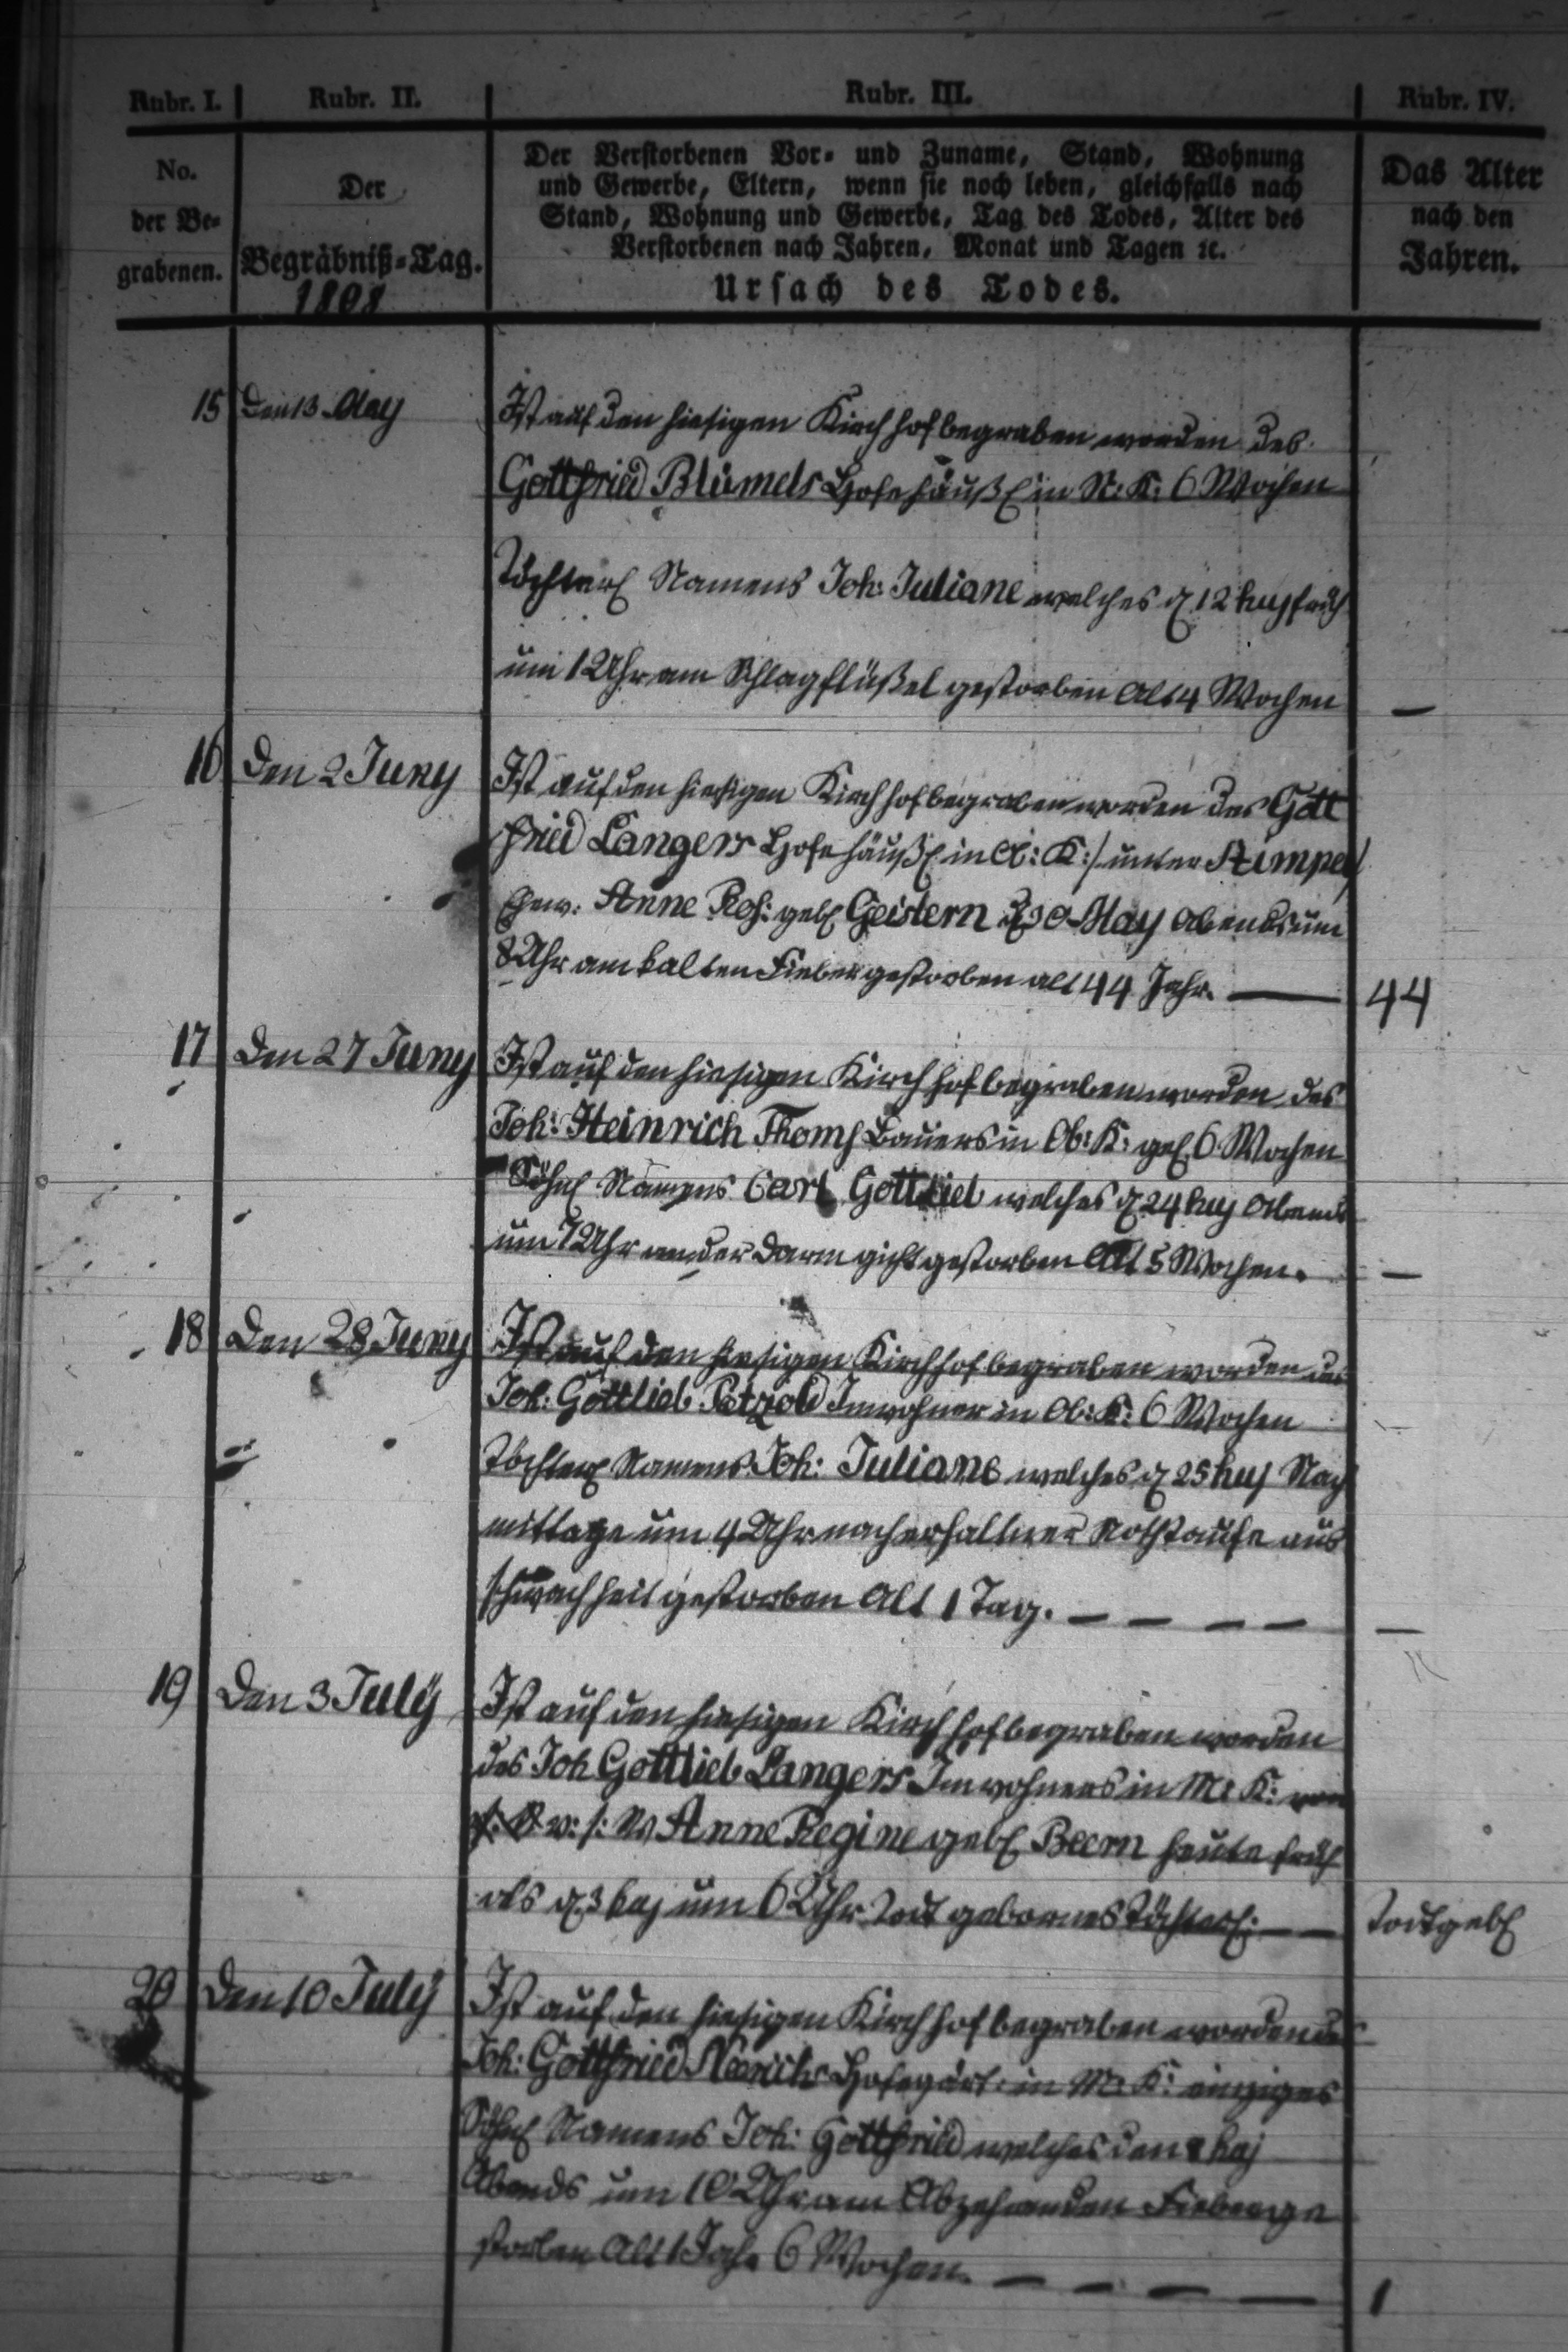 Rubr. I. Rubr. II. Rubr. III. Rubr. IV.
No.
der Be-
grabenen.
Der
Begräbniß-Tag.
1808
Der Verstorbenen Vor- und Zuname, Stand, Wohnung
und Gewerbe, Eltern, wenn sie noch leben, gleichfalls nach
Stand, Wohnung und Gewerbe, Tag des Todes, Alter des
Verstorbenen nach Jahren, Monat und Tagen ꝛc.
Ursach des Todes.
Das Alter
nach den
Jahren.
15 Den 13 May Ist auf den hiesigen Kirchhof begraben worden des
Gottfried Blümels Hofehäußl in N: K: 6 Wochen
Töchterl Namens Joh: Juliane welches d 12 huj früh
um 1 Uhr am Schlagflüßel gestorben Alt 4 Wochen —
16 Den 2 Juny Ist auf den hiesigen Kirchhof begraben worden des Gott
fried Langers Hofehäußl in Ob: K:
Ehew: Anne Ros: geb Geislern d 30 May Abends um
8 Uhr am kalten Fieber gestorben alt 44 Jahr. — 44
17 Den 27 Juny Ist auf den hiesigen Kirchhof begraben worden des
Joh: Heinrich Thoms Bauers in Ob: K: 6 Wochen
Söhnl Namens Carl Gottlieb welches d 24 huj Abends
um 7 Uhr an der Darmgicht gestorben Alt 5 Wochen. —
18 Den 28 Juny Ist auf den hiesigen Kirchhof begraben worden des
Joh: Gottlieb Petzold Inwohner in Ob: K: 6 Wochen
Töchterl Namens Joh: Juliane welches d 25 huj Nach
mittage um 4 Uhr nach erhaltner Nothtaufe aus
schwachheit gestorben Alt 1 Tag. — — — — —
19 Den 3 July Ist auf den hiesigen Kirchhof begraben worden
des Joh Gottlieb Langers Inwohners in M: K: von
Anne Regine geb Beern heute früh
als d 3 huj um 6 Uhr todt gebornes Töchterl: — Todtgeb
20 Den 10 July Ist auf den hiesigen Kirchhof begraben worden des
Joh: Gottfried Hofegärt: in M: K: einziges
Söhnl Namens Joh: Gottfried welches den 8 huj
Abends um 10 Uhr am Abzehrenden Fieber ge
storben Alt 1 Jahr 6 Wochen. — — — — 1